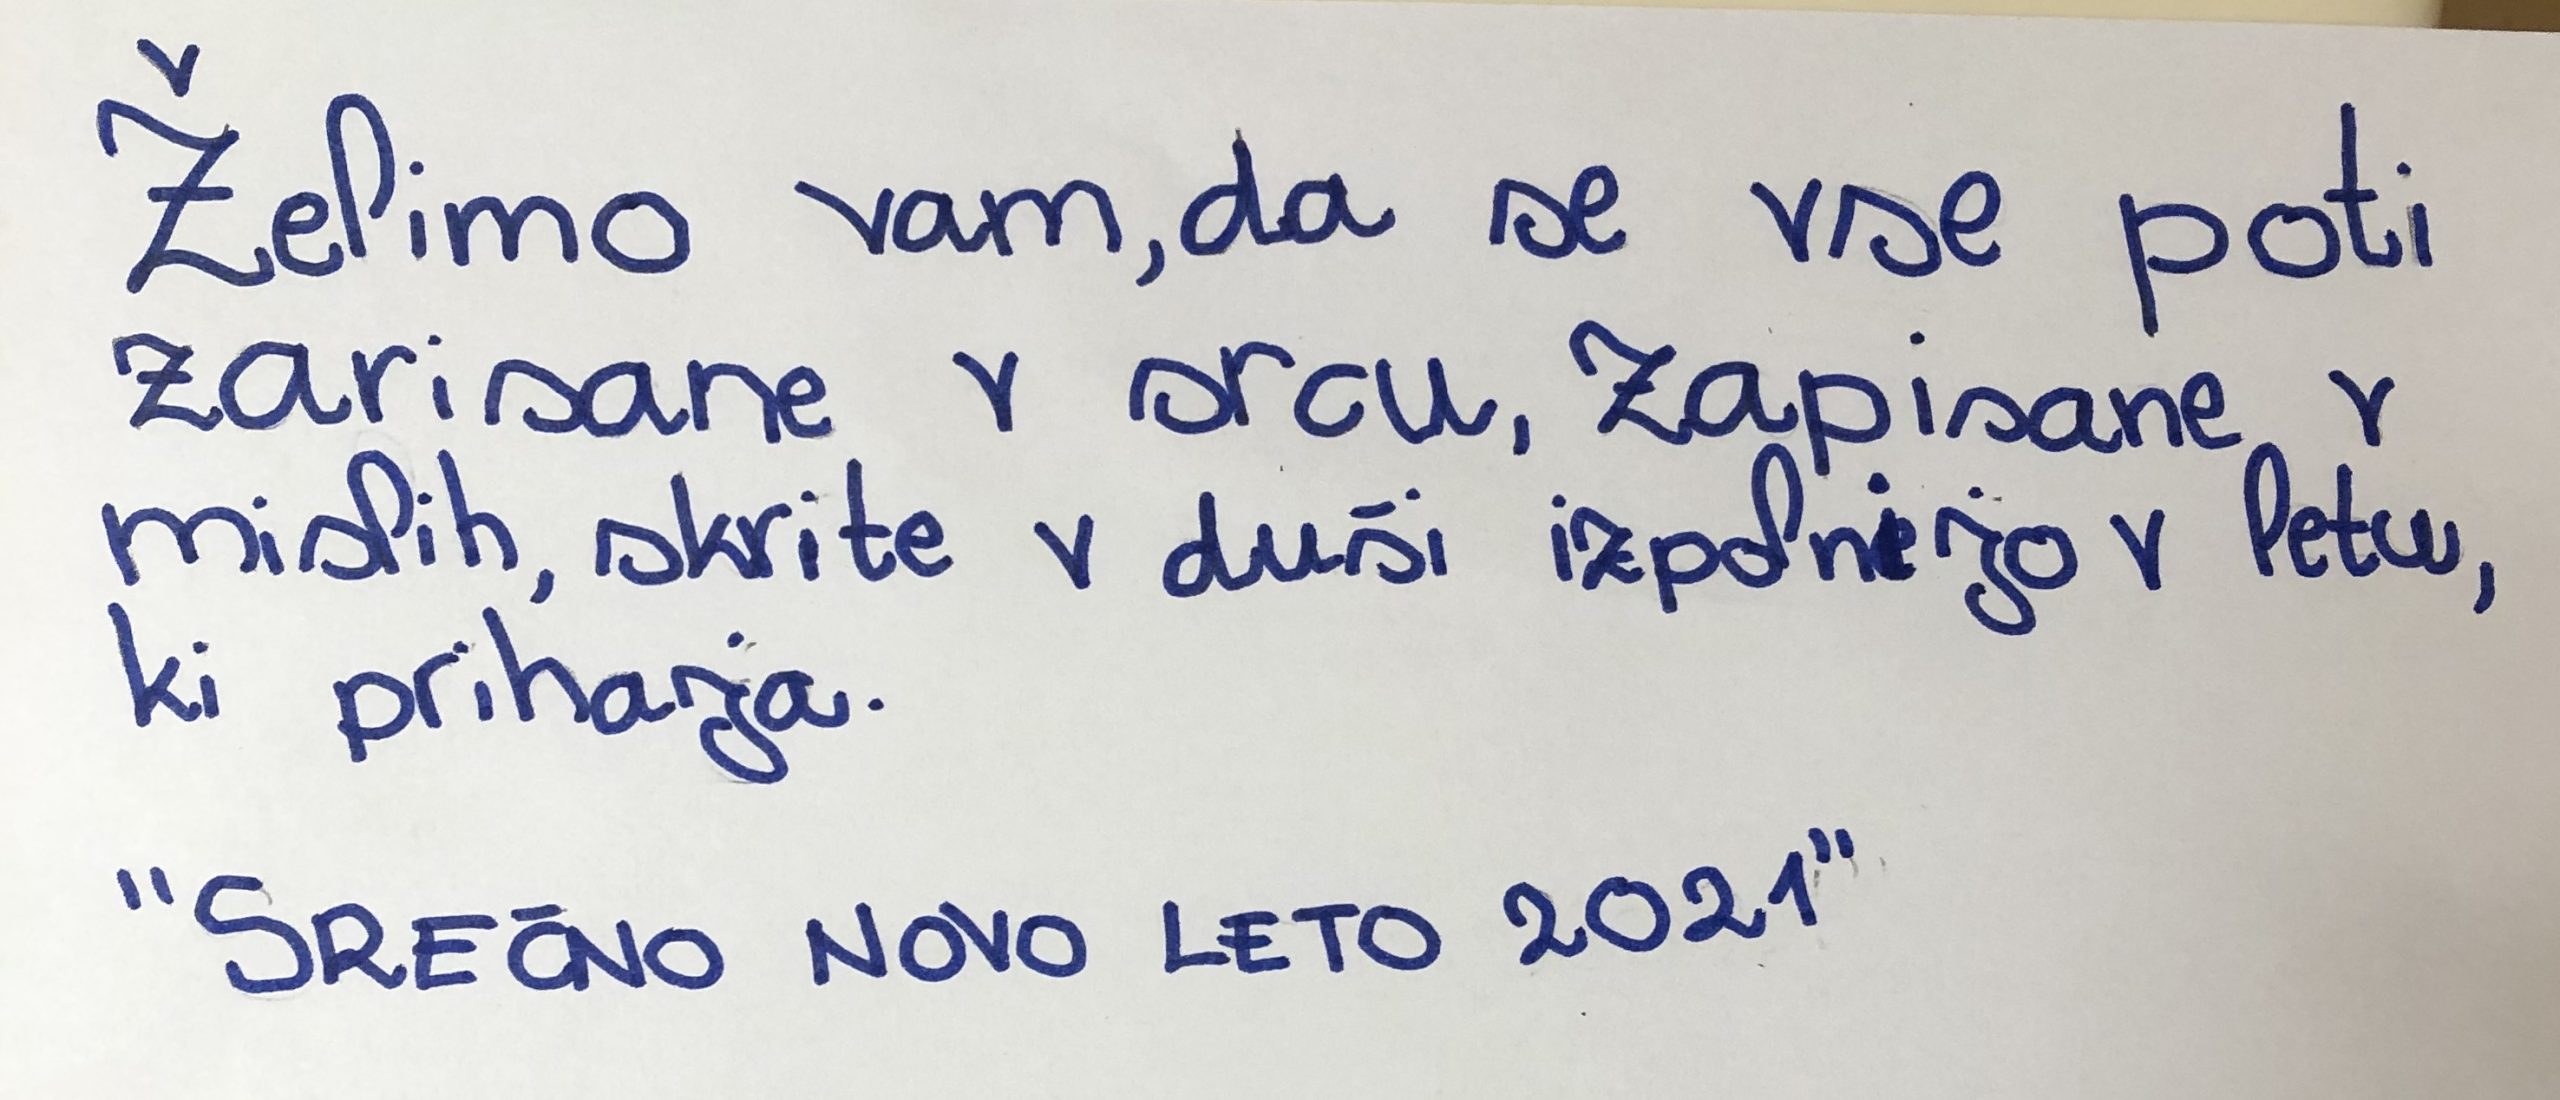 Želimo vam, da se vse poti
zarisane v srcu, zapisane v
mislih, skrite v duši izpolnijo v letu,
ki prihaja.
"SREČNO NOVO LETO 2021"